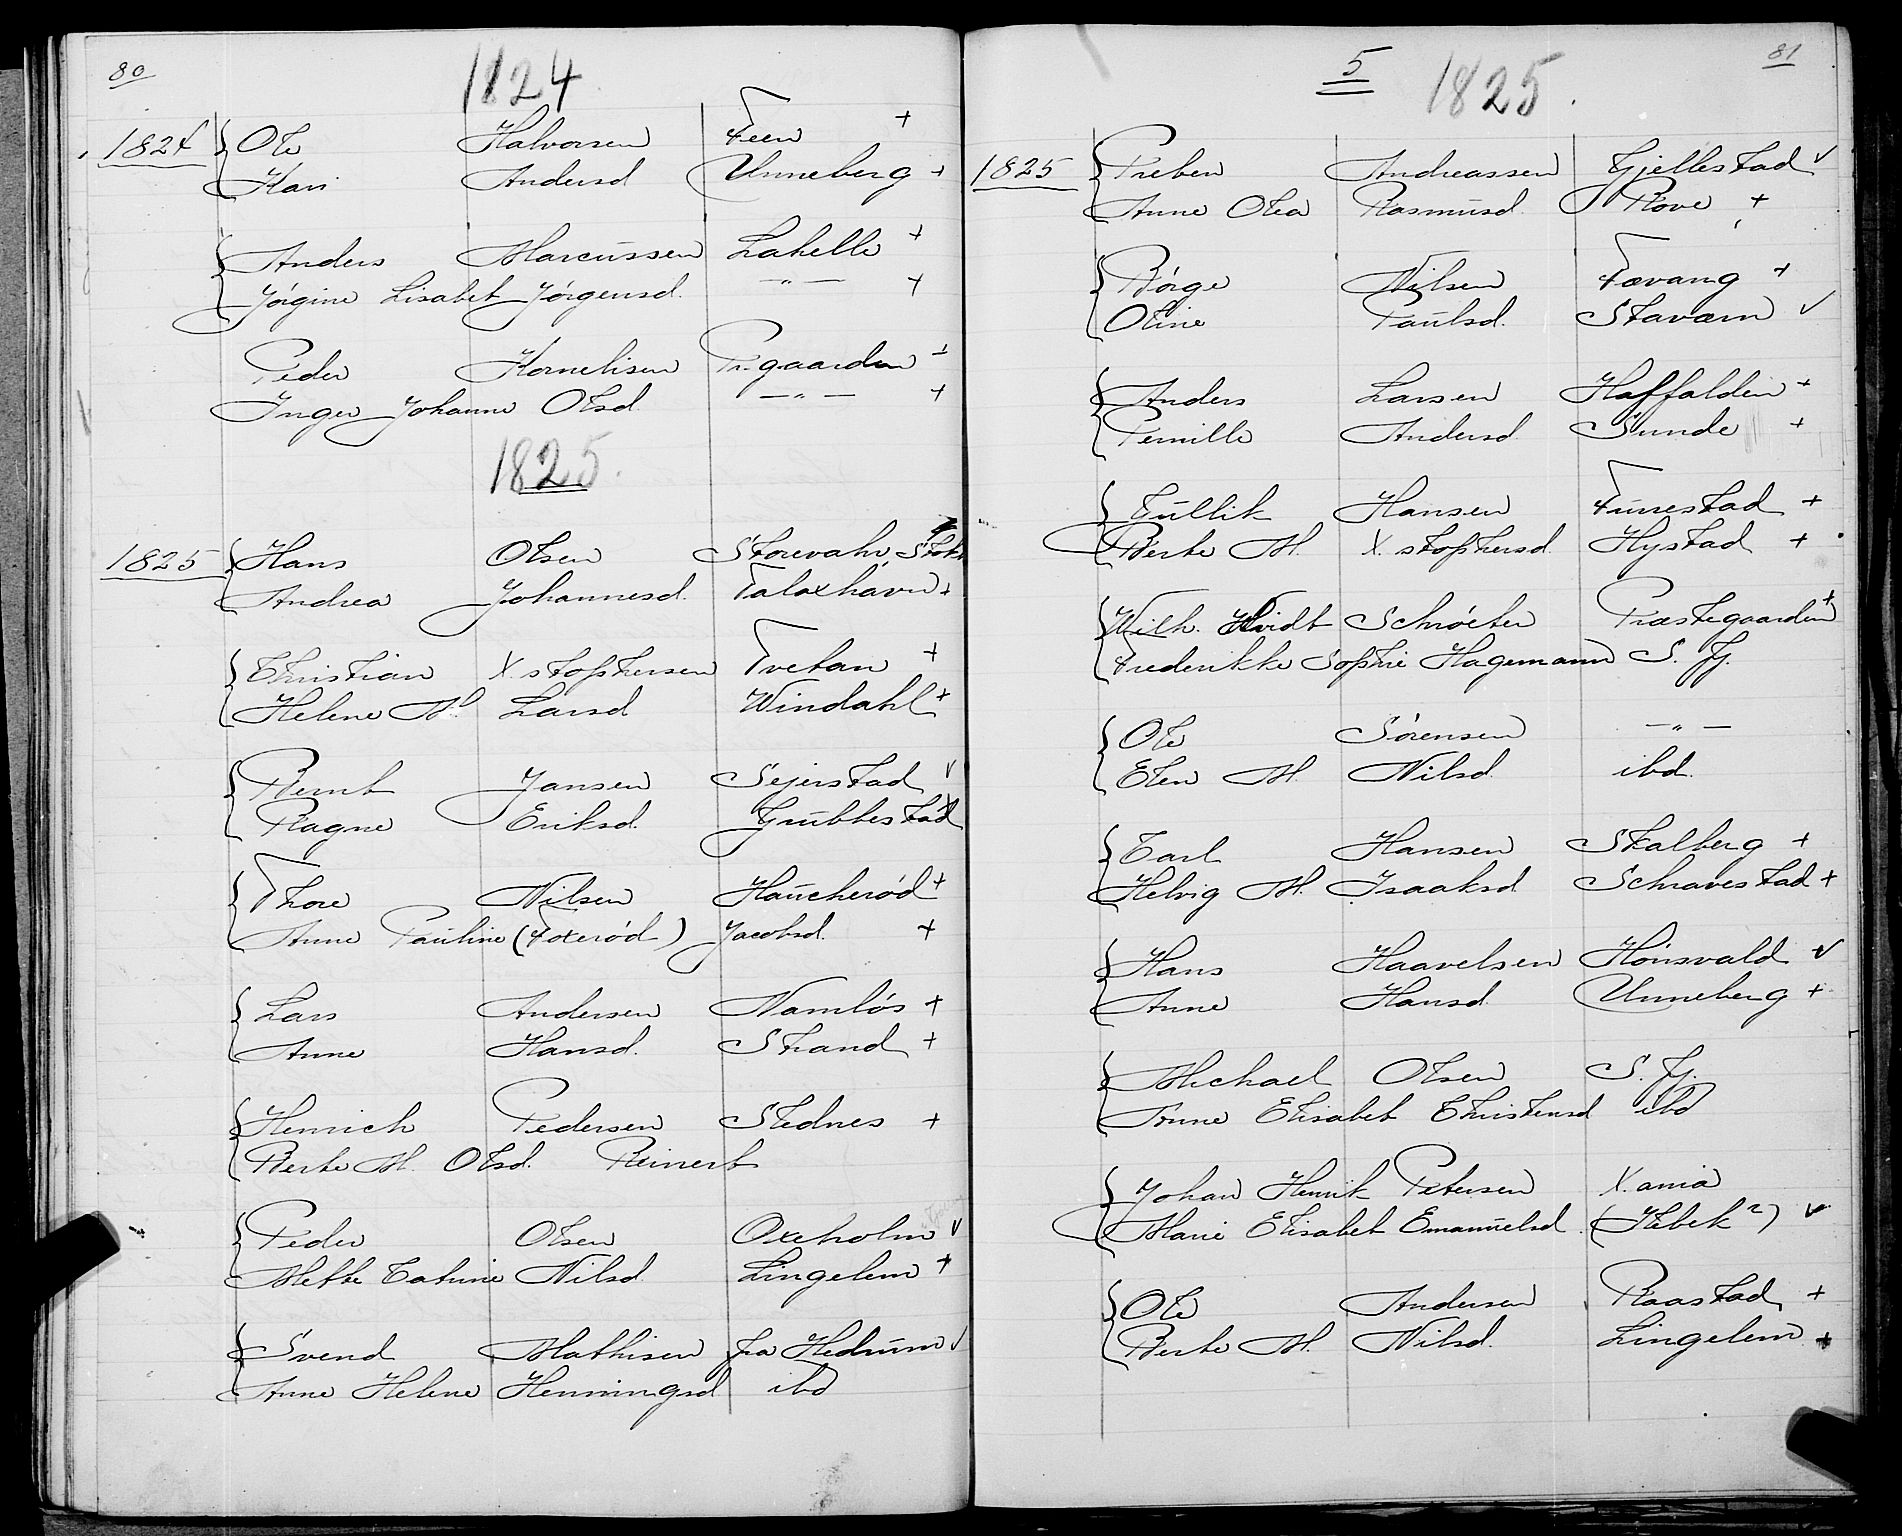 80
1824
1824 Ole Halvorsen Feen +
Kari Andersd Unneberg +
Anders Marcussen Lahelle +
Jörgine Lisabet Jörgensd. —„— +
Peder Kornelisen Pr.gaarden +
Inger Johanne Olsd. —„— +
1825.
1825 Hans Olsen Storevahr
Andrea Johannesd. Falaxhavn +
Christian X.stophersen Tvetan +
Helene M. Larsd Windahl +
Bernt Jansen Sejerstad v
Ragne Eriksd. Grubbestad
Thore Nilsen Haucherød +
Anne Pauline (Foxerød) Jacobsd. +
Lars Andersen Namløs +
Anne Hansd. Strand +
Henrich Pedersen Stednes +
Berte M. Olsd. Reinert
Peder Olsen Oxeholm v
Mette Catrine Nilsd. Lingelem +
Svend Mathisen fra Hedrum v
Anne Helene Henningsd ibd
5
1825.
81
1825 Preben Andreassen Gjellestad v
Anne Olea Rasmusd. Rove +
Børge Nilsen Fævang +
Oline Paulsd. Staværn v
Anders Larsen Haffalden +
Pernille Andersd. Sunde +
Gullik Hansen Furrestad +
Berte M. X.stophersd. Hystad +
Wilh. Hvidt Schrøeter Præstegaarden +
Frederikke Sophie Hagemann S. Fj.
Ole Sørensen —„—
Elen M. Nilsd. ibd.
Carl Hansen Skalberg +
Helvig M. Isaaksd. Schravestad +
Hans Haavelsen Hönsvald v
Anne Hansd. Unneberg +
Michael Olsen S. Fj.
Anne Elisabet Christensd ibd
Johan Henrik Petersen X.ania
Marie Elisabet Emanuelsd. v
Ole Andersen Raastad +
Berte M. Nilsd. Lingelem +